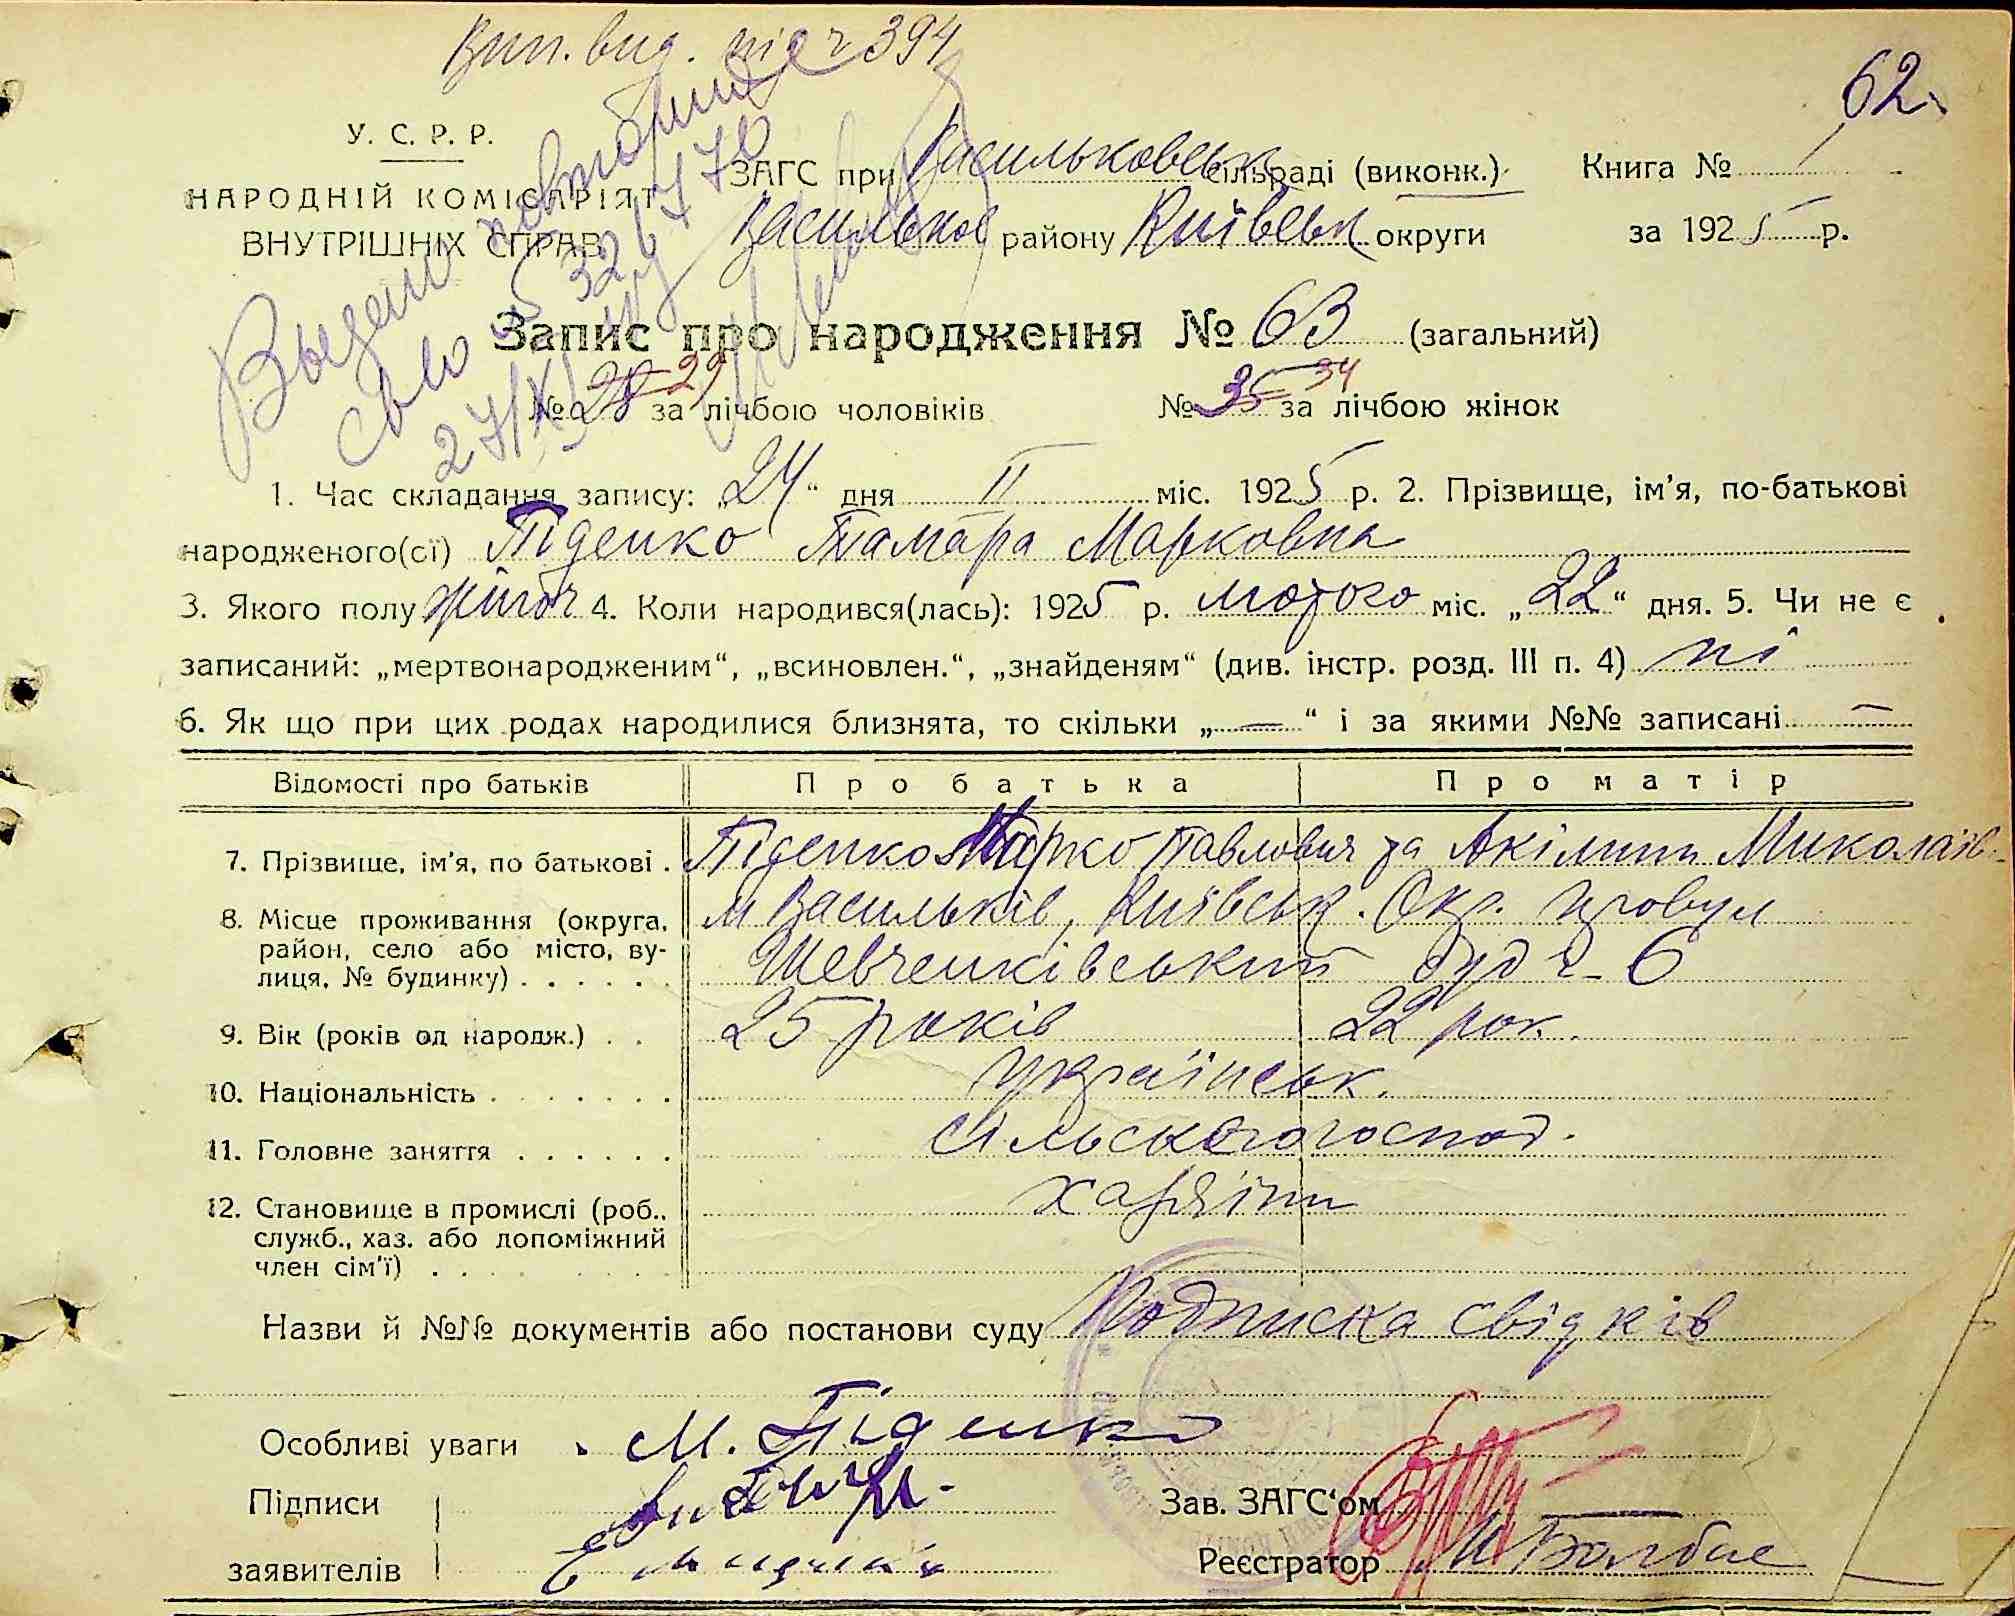 Вип. вид. під ч 394
62
У. С. Р. Р.
НАРОДНІЙ КОМІСАРІЯТ
ВНУТРІШНІХ СПРАВ
ЗАГС при Васильковськ сільраді (виконк.) Книга № 1
Васильков району Київськ округи за 1925 р.
Выдано повторное
св-во
27/XI
Запис про народження № 63 (загальний)
№ 28 29 за лічбою чоловіків № 35 34 за лічбою жінок
1. Час складання запису: „24“ дня II міс. 1925 р. 2. Прізвище, ім’я, по-батькові
народженого(сї) Піденко Тамара Марковна
3. Якого полу жіноч 4. Коли народився(лась): 1925 р. лютого міс. „22“ дня. 5. Чи не є
записаний: „мертвонародженим“, „всиновлен.“, „знайденям“ (див. інстр. розд. III п. 4) ні
6. Як що при цих родах народилися близнята, то скільки „—“ і за якими №№ записані —
Відомості про батьків Про батька Про матір
7. Прізвище, ім’я, по батькові . Піденко Марко Павлович та Акілини Миколаїв.
8. Місце проживання (округа, м Васильків, Київськ. Окр. провул
район, село або місто, ву- Шевченківський буд ч- 6
лиця, № будинку) . . . . . .
9. Вік (років од народж.) . . 25 років 22 рок.
10. Національність . . . . . . . українськ.
11. Головне заняття . . . . . . сільськогоспод.
12. Становище в промислі (роб.,
служб., хаз. або допоміжний
член сім’ї) . .
Назви й №№ документів або постанови суду Подписка свідків
Особливі уваги М. Піденко
Підписи Зав. ЗАГС‘ом
заявителів Реєстратор